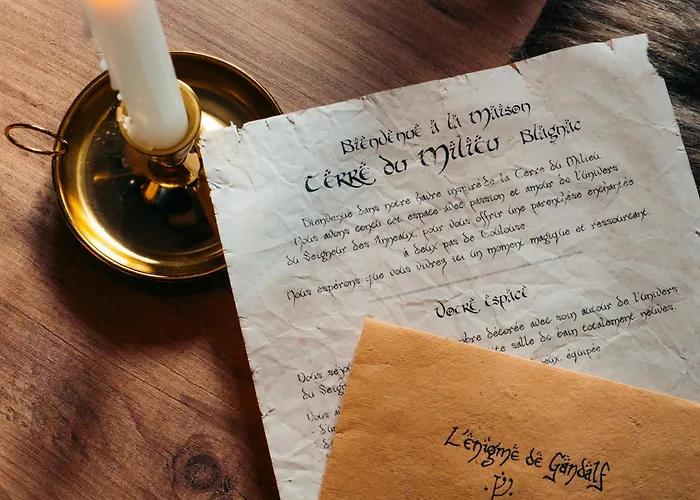 Bienvenue à la maison
Terre du Milieu Blagnac
Bienvenue dans notre havre inspiré de la Terre du Milieu.
Nous avons conçu cet espace avec passion et amour de l'univers
du Seigneur des Anneaux, pour vous offrir une parenthèse enchantée
à deux pas de Toulouse.
Nous espérons que vous vivrez ici un moment magique et ressourçant
Votre espace
décorée avec soin autour de l'univers
salle de bain totalement neuves.
équipée
Vous
du Seign
L'énigme de Gandalf